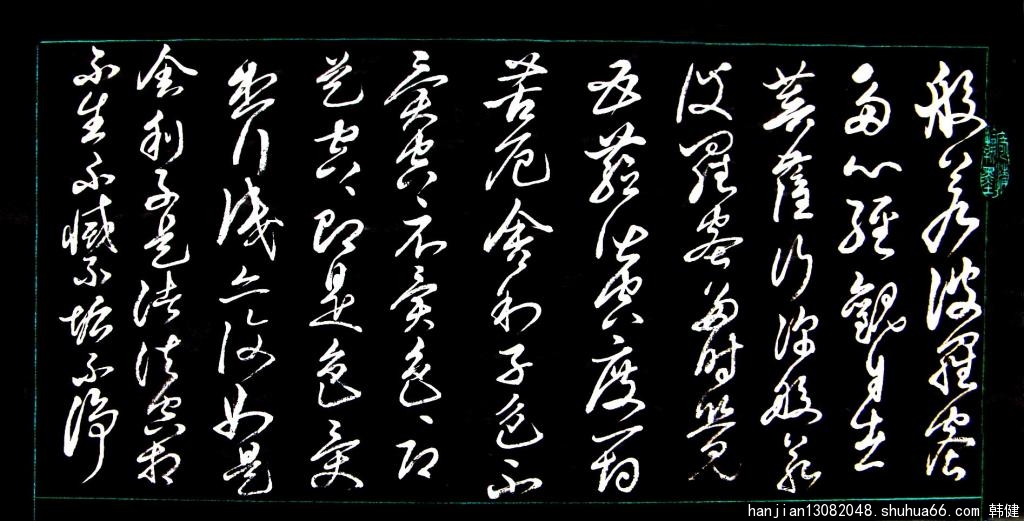 般若波羅蜜
多心經觀自在
菩薩行深般若
波羅蜜多時照見
五蘊皆空度一切
苦厄舍利子色不
異空〻不異色〻即
是空〻即是色受
想行識亦復如是
舍利子是諸法空相
不生不滅不垢不淨
hanjian13082048.shuhua66.com 韩健